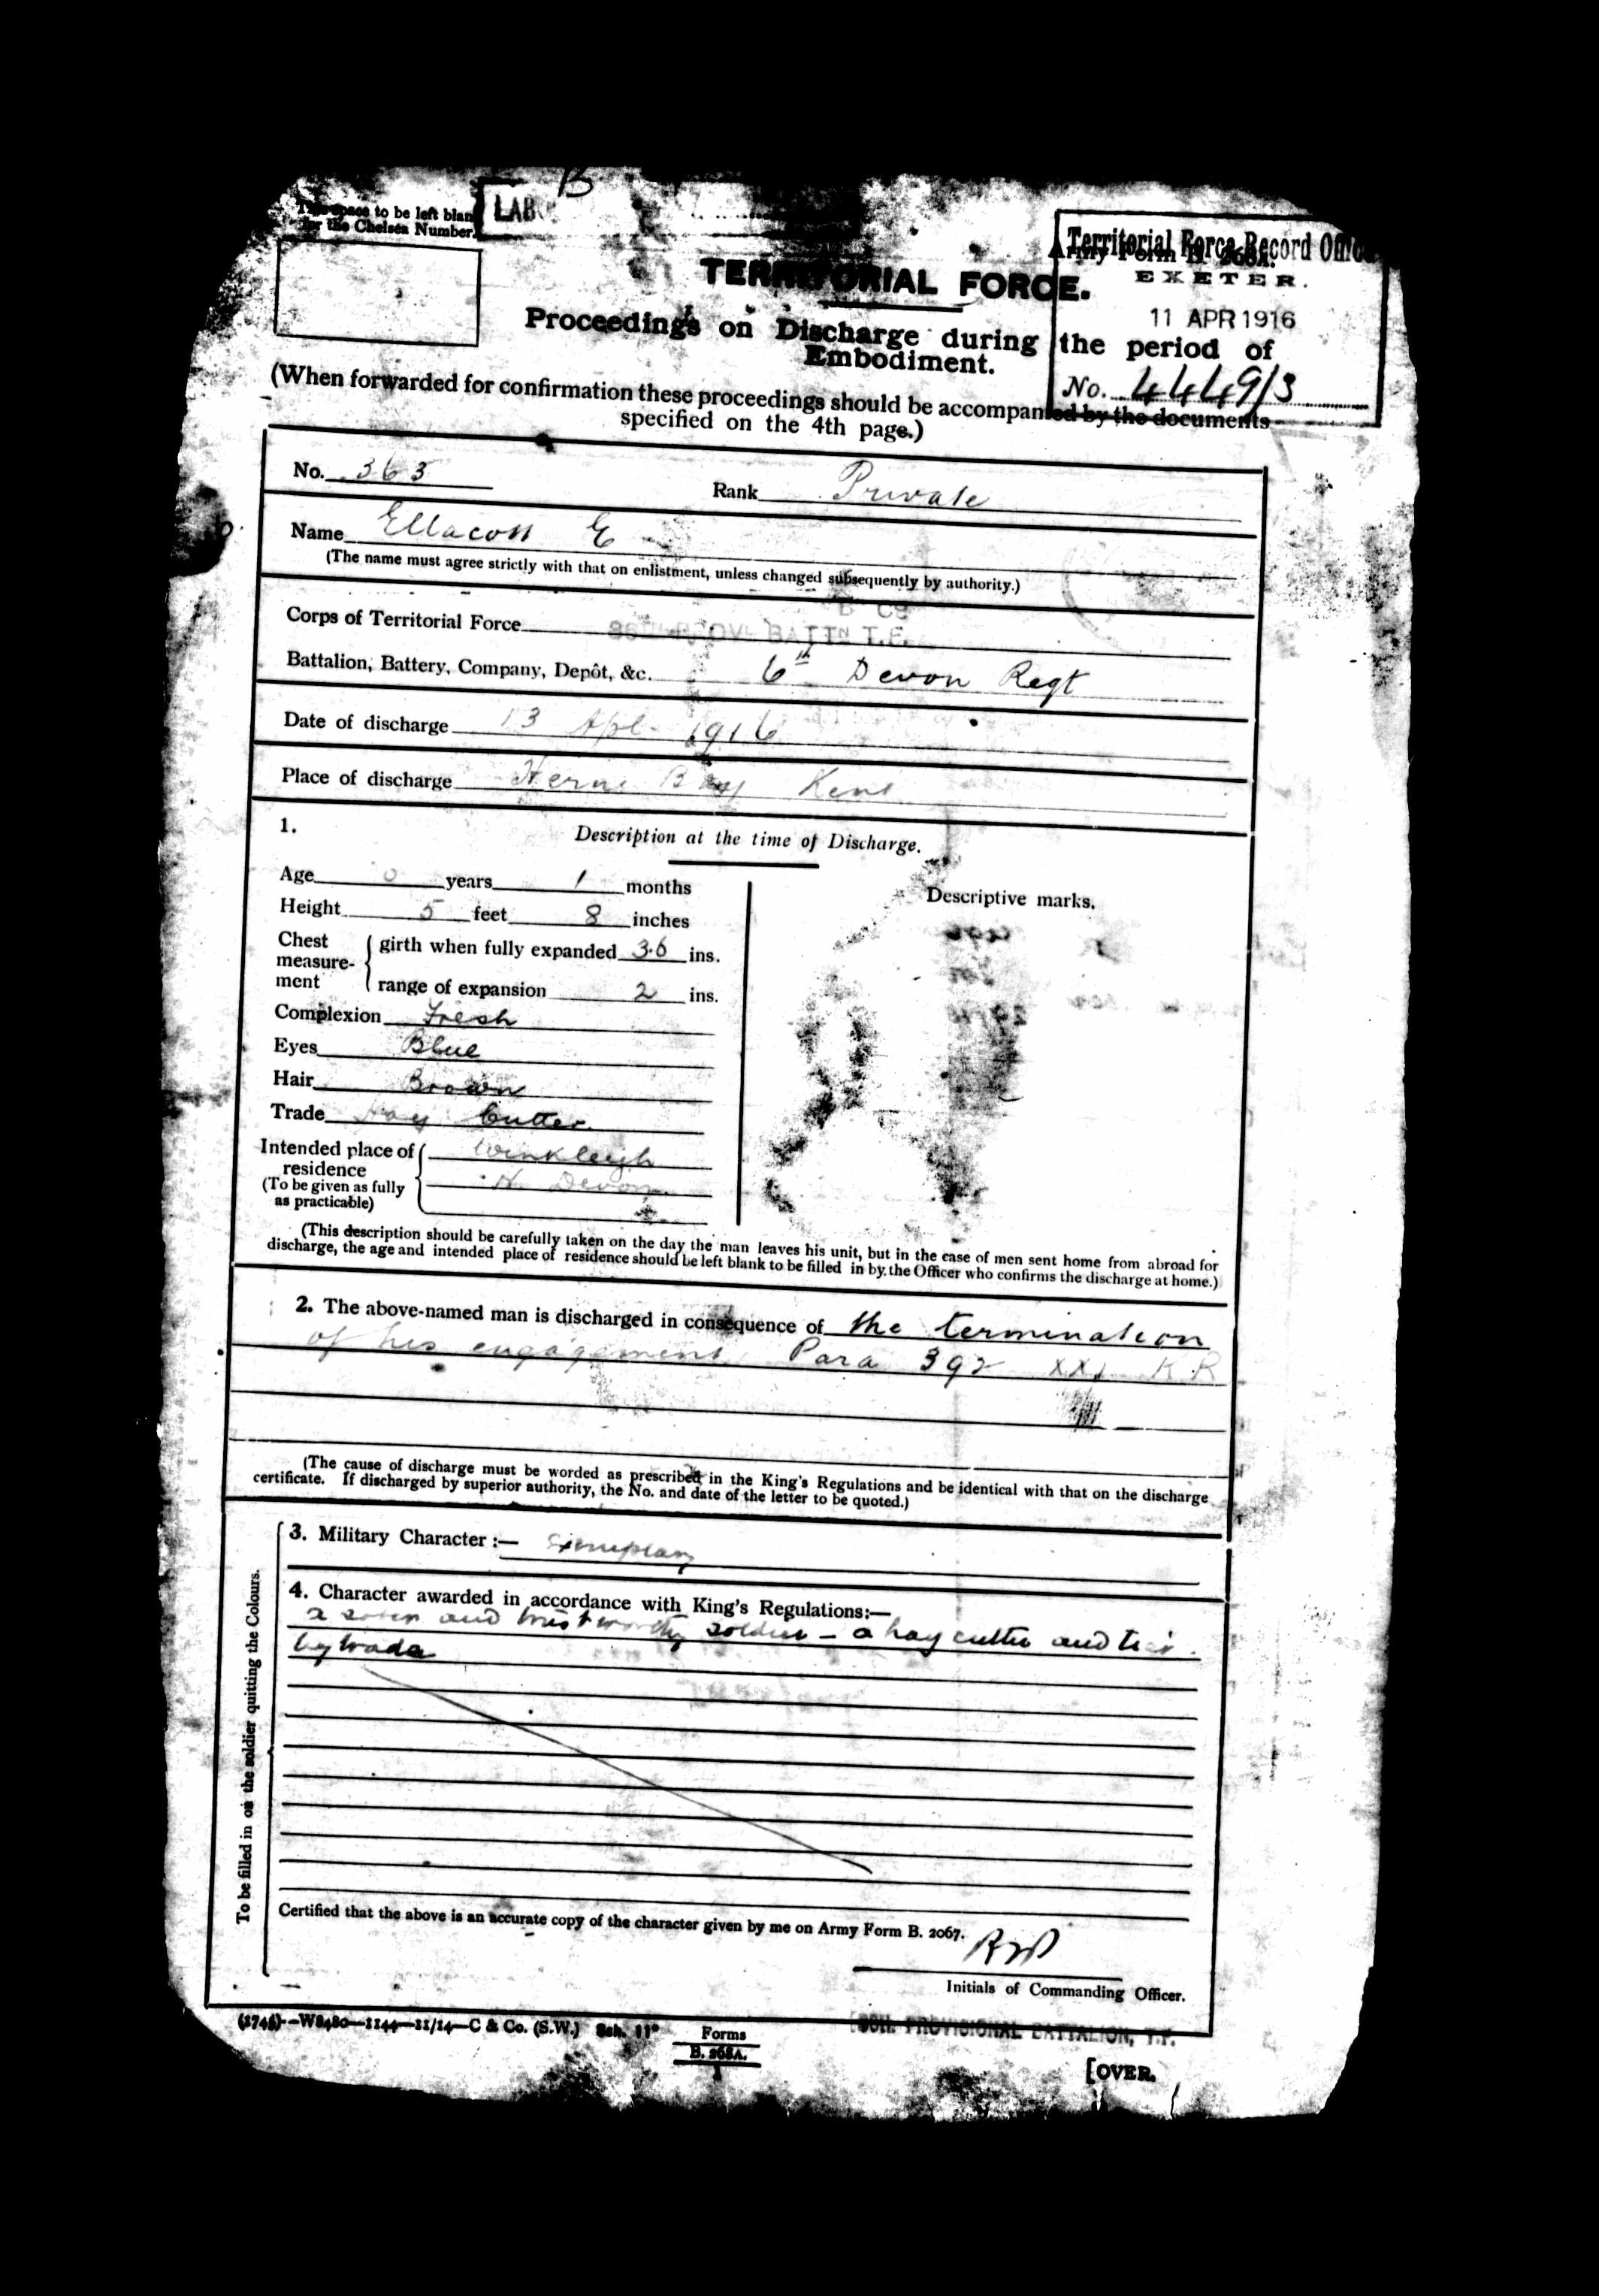 B
This space to be left blank
for the Chelsea Number.
LAB
Territorial Force Record Office
Army Form B. 268A.
EXETER.
11 APR 1916
No. 4449/3
TERRITORIAL FORCE.
Proceedings on Discharge during the period of
Embodiment.
(When forwarded for confirmation these proceedings should be accompanied by the documents
specified on the 4th page.)
No. 363 Rank Private
Name Ellacott E
(The name must agree strictly with that on enlistment, unless changed subsequently by authority.)
B Co
Corps of Territorial Force 86TH PROVL BATTN T.F.
Battalion, Battery, Company, Depôt, &c. 6th Devon Regt
Date of discharge 13 Apl. 1916
Place of discharge Herne Bay Kent
1. Description at the time of Discharge.
Age years 1 months
Height 5 feet 8 inches
Chest measurement girth when fully expanded 36 ins.
range of expansion 2 ins.
Complexion Fresh
Eyes Blue
Hair Brown
Trade Hay Cutter
Intended place of residence (To be given as fully as practicable) Winkleigh
N. Devon
Descriptive marks.
(This description should be carefully taken on the day the man leaves his unit, but in the case of men sent home from abroad for
discharge, the age and intended place of residence should be left blank to be filled in by the Officer who confirms the discharge at home.)
2. The above-named man is discharged in consequence of the termination
of his engagement Para 392 XXI K.R
(The cause of discharge must be worded as prescribed in the King's Regulations and be identical with that on the discharge
certificate. If discharged by superior authority, the No. and date of the letter to be quoted.)
To be filled in on the soldier quitting the Colours.
3. Military Character :— Exemplary
4. Character awarded in accordance with King's Regulations:—
a sober and trustworthy soldier - a hay cutter and tier
by trade
Certified that the above is an accurate copy of the character given by me on Army Form B. 2067.
Initials of Commanding Officer.
(1745)--W8480—1144—11/14—C & Co. (S.W.) Sch. 11
Forms
B. 268A.
1
86TH. PROVISIONAL BATTALION, T.F.
[OVER.